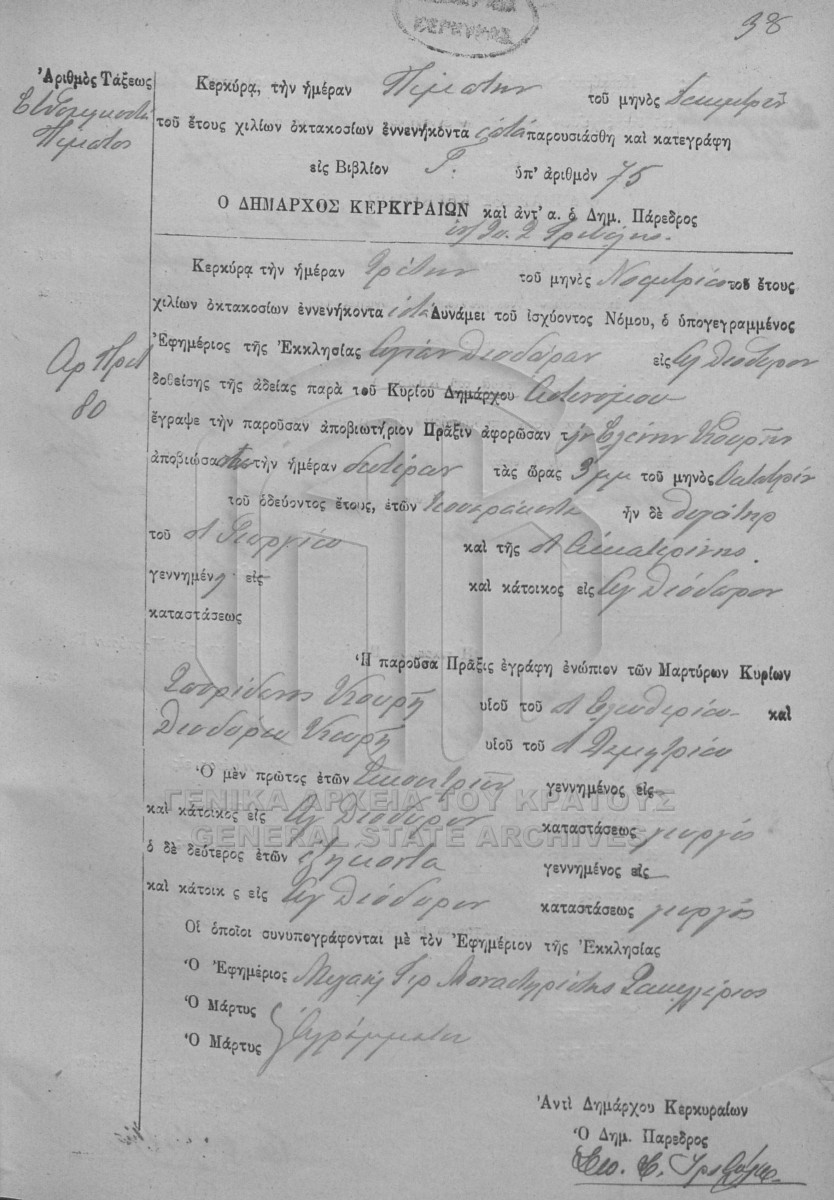 ΚΕΡΚΥΡΑΣ
38
Ἀριθμὸς Τάξεως
Ἑβδομηκοστὸς
Πέμπτος
Κερκύρᾳ, τὴν ἡμέραν Πέμπτην τοῦ μηνὸς
τοῦ ἔτους χιλίων ὀκτακοσίων ἐννενήκοντα ἑπτὰ παρουσιάσθη καὶ κατεγράφη
εἰς Βιβλίον Γ. ὑπ' ἀριθμὸν 75
Ο ΔΗΜΑΡΧΟΣ ΚΕΡΚΥΡΑΙΩΝ καὶ ἀντ' α. ὁ Δημ. Πάρεδρος
Κερκύρᾳ τὴν ἡμέραν Τρίτην τοῦ μηνὸς Νοεμβρίου τοῦ ἔτους
χιλίων ὀκτακοσίων ἐννενήκοντα ἑπτὰ Δυνάμει τοῦ ἰσχύοντος Νόμου, ὁ ὑπογεγραμμένος
Ἐφημέριος τῆς Ἐκκλησίας Ἁγίων Θεοδώρων εἰς Ἁγ Θεόδωρον
Αρ Πρωτ
80
δοθείσης τῆς ἀδείας παρὰ τοῦ Κυρίου Δημάρχου Ἀστυνόμου
ἔγραψε τὴν παροῦσαν ἀποβιωτήριον Πρᾶξιν ἀφορῶσαν τὴν Ἑλένην Κουρῆ
ἀποβιώσασαν τὴν ἡμέραν Δευτέραν τὰς ὥρας 3 μμ τοῦ μηνὸς
τοῦ ὁδεύοντος ἔτους, ἐτῶν τεσσαράκοντα ἦν δὲ θυγάτηρ
τοῦ Γεωργίου καὶ τῆς Αἰκατερίνης.
γεννημένη εἰς καὶ κάτοικος εἰς Ἁγ Θεόδωρον
καταστάσεως
Ἡ παροῦσα Πρᾶξις ἐγράφη ἐνώπιον τῶν Μαρτύρων Κυρίων
Σπυρίδωνος Κουρῆ υἱοῦ τοῦ Ἐλευθερίου καὶ
Θεοδώρου Κουρῆ υἱοῦ τοῦ Δημητρίου
Ὁ μὲν πρῶτος ἐτῶν γεννημένος εἰς
ΓΕΝΙΚΑ ΑΡΧΕΙΑ ΤΟΥ ΚΡΑΤΟΥΣ
καὶ κάτοικος εἰς Ἁγ Θεόδωρον καταστάσεως γεωργός
GENERAL STATE ARCHIVES
ὁ δὲ δεύτερος ἐτῶν ἑξήκοντα γεννημένος εἰς
καὶ κάτοικ ς εἰς Ἁγ Θεόδωρον καταστάσεως γεωργός
Οἱ ὁποῖοι συνυπογράφονται μὲ τὸν Ἐφημέριον τῆς Ἐκκλησίας
Ὁ Ἐφημέριος Μιχαήλ Ἱερ Μοναστηριώτης
Ὁ Μάρτυς
Ἀγράμματοι
Ὁ Μάρτυς
Ἀντὶ Δημάρχου Κερκυραίων
Ὁ Δημ. Πάρεδρος